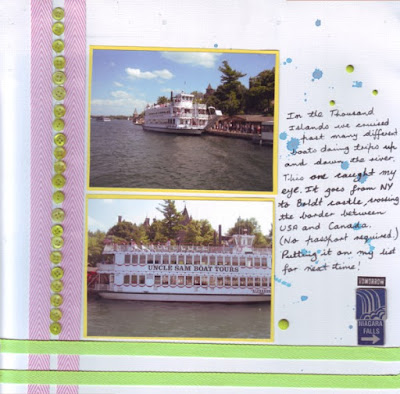 In the Thousand
Islands we cruised
past many different
boats doing trips up
and down the river.
This one caught my
eye. It goes from NY
to Boldt castle, crossing
the border between
USA and Canada.
(No passport required.)
Putting it on my list
for next time!
UNCLE SAM BOAT TOURS
NIAGARA
FALLS